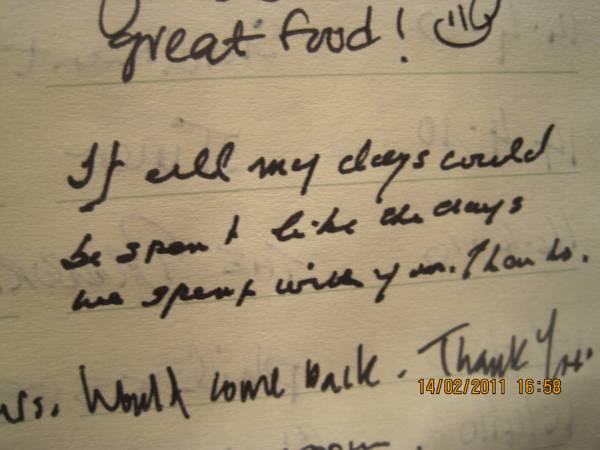 great food!
If all my days could
be spent like the days
we spent with you. Thanks.
Would come back. Thank You.
14/02/2011 16:58